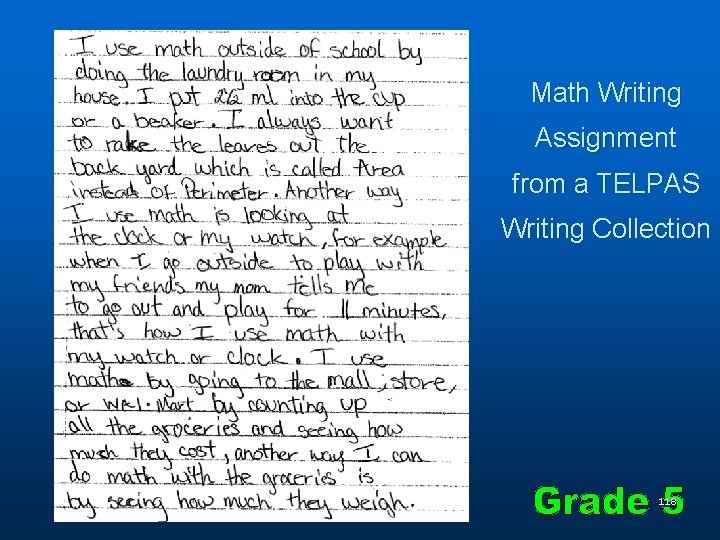 I use math outside of school by
doing the laundry room in my
house. I put 2½ ml into the cup
or a beaker. I always want
to rake the leaves out the
back yard which is called Area
instead of Perimeter. Another way
I use math is looking at
the clock or my watch, for example
when I go outside to play with
my friends my mom tells me
to go out and play for 11 minutes,
that's how I use math with
my watch or clock. I use
math by going to the mall, store,
or WAl-Mart by counting up
all the groceries and seeing how
much they cost, another way I can
do math with the groceries is
by seeing how much they weigh.
Math Writing
Assignment
from a TELPAS
Writing Collection
Grade 5